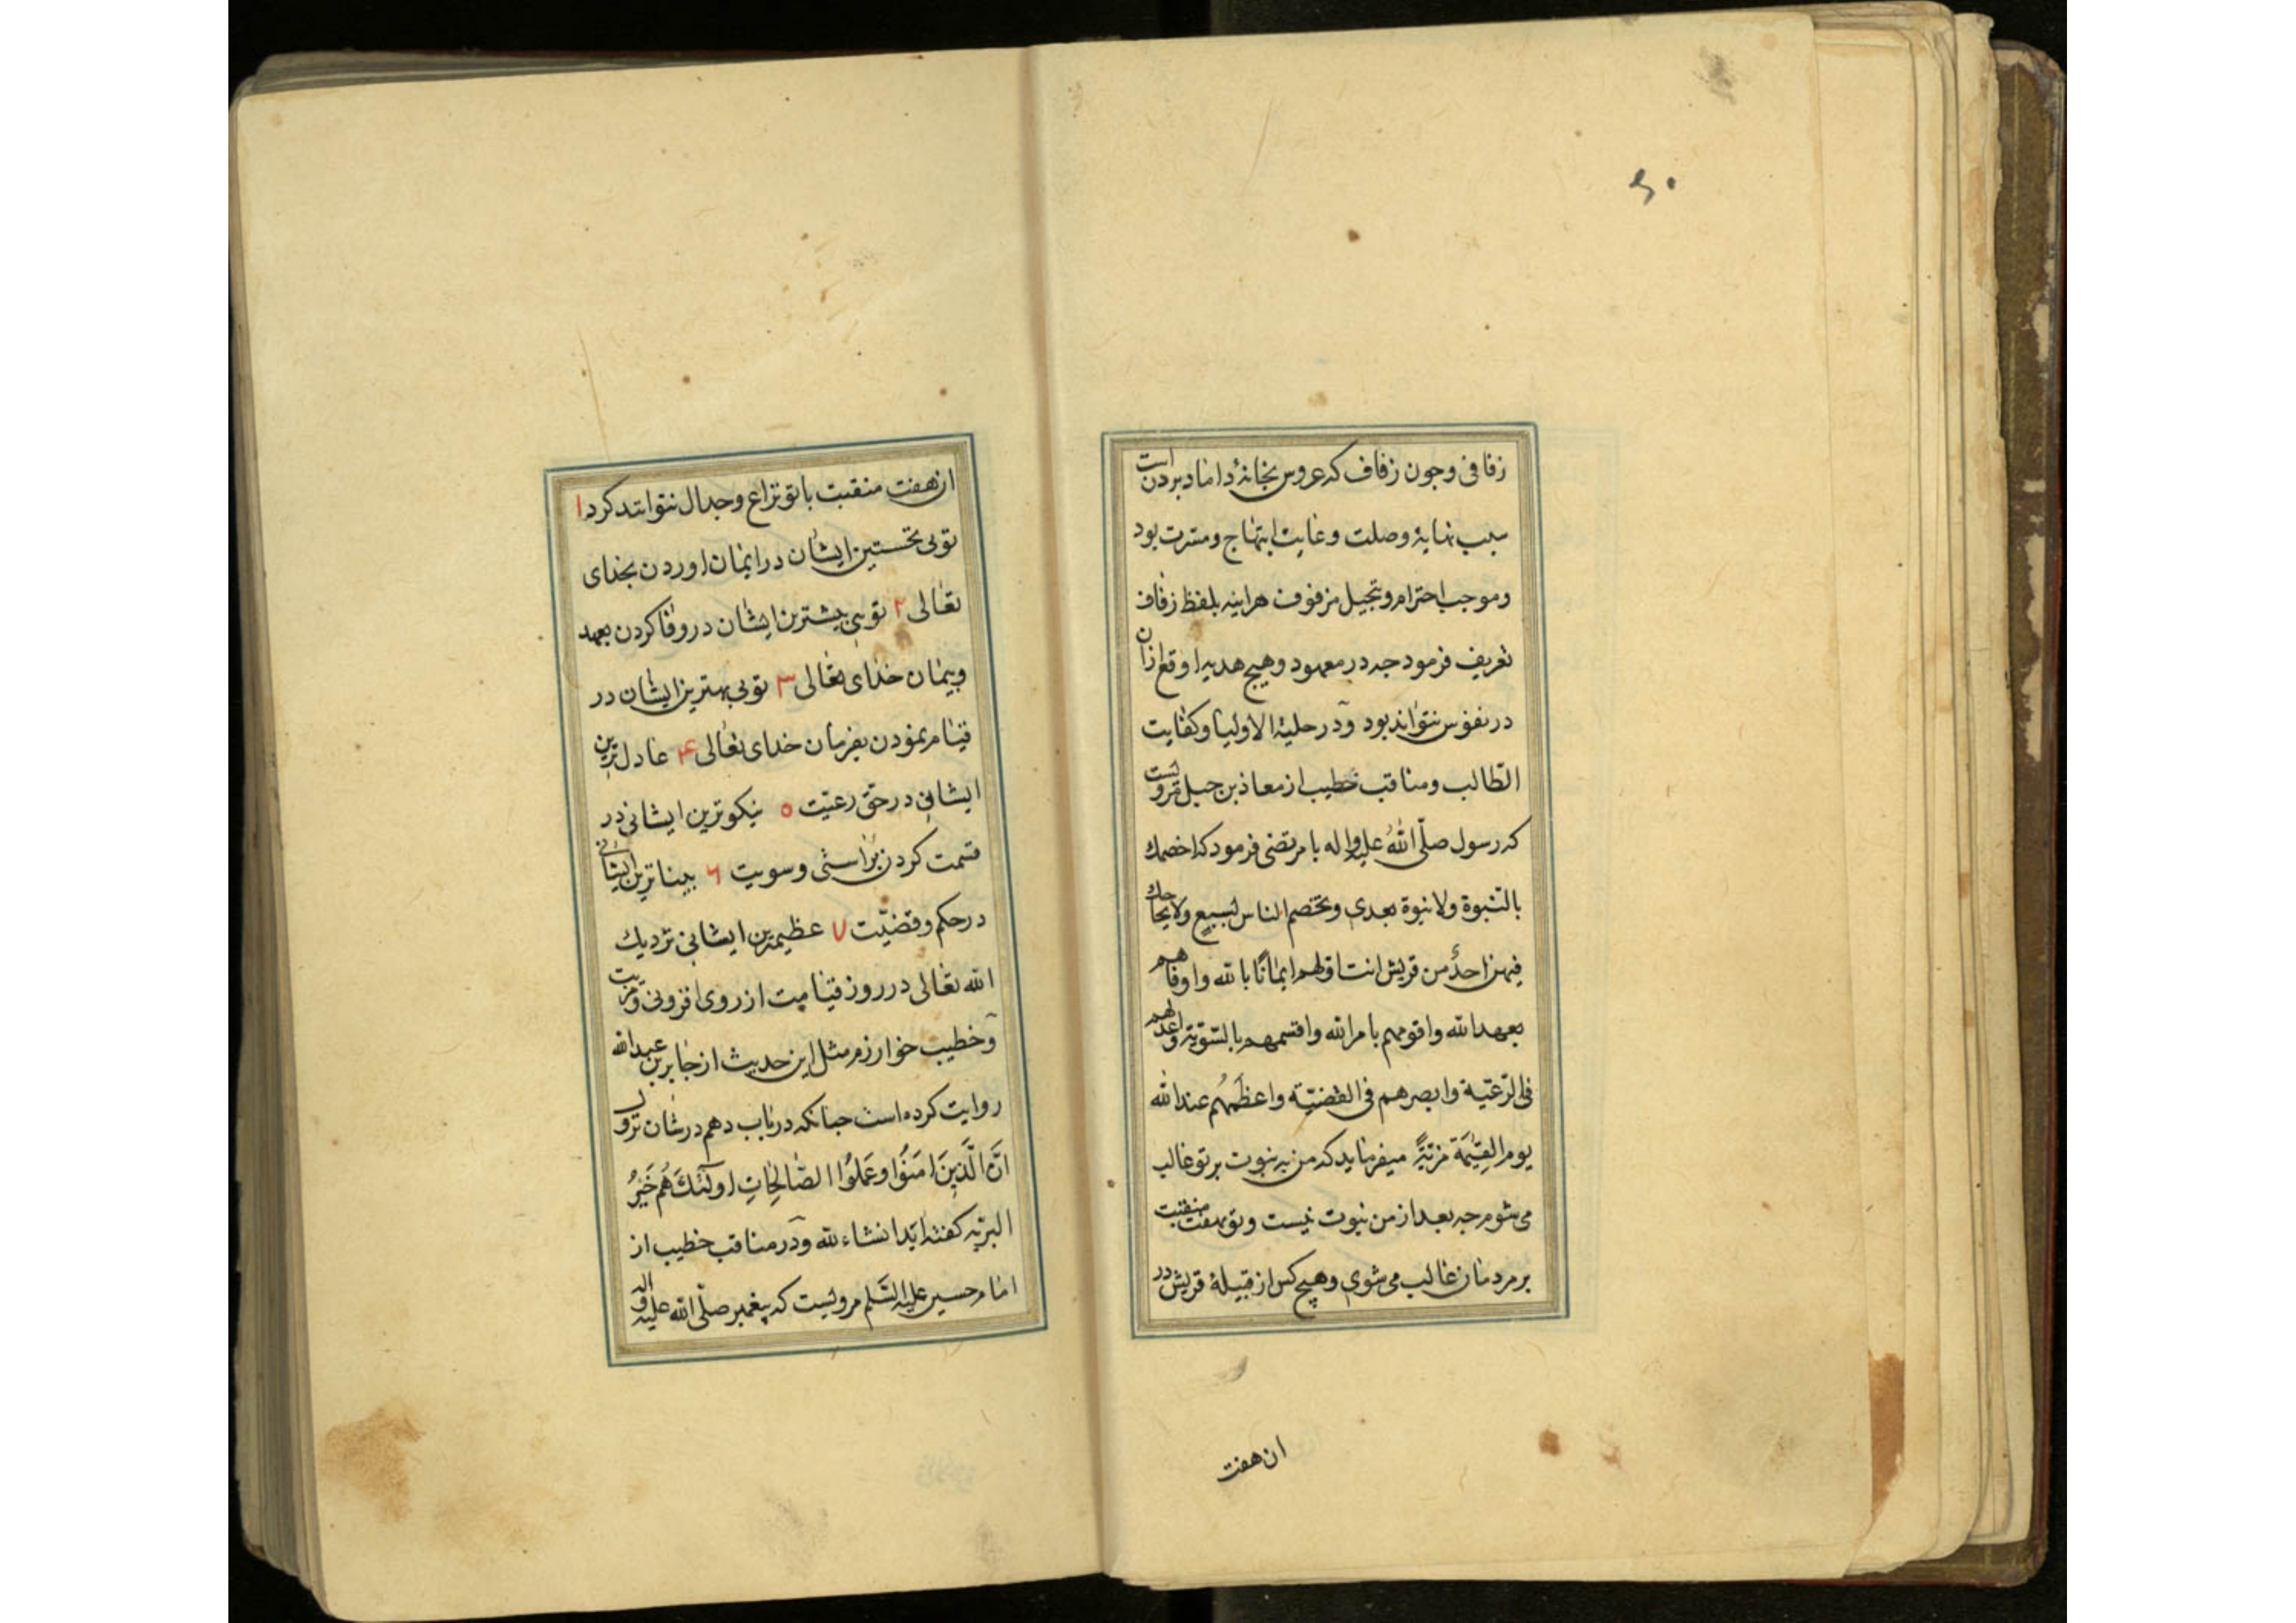 ۶۰
زفافی وجون زفاف که عروس بخانهٔ داماد بردن است
سبب نهایهٔ وصلت و غایت ابتهاج و مسرت بود
وموجب احترام وتبجیل مزفوف هراینه بلفظ زفاف
تعریف فرمود جه در معهود وهیچ هدیه اوقع ازان
در نفوس نتواند بود ودر حلیة الاولیا وکفایت
الطالب ومناقب خطیب از معاذ بن جبل مرویست
که رسول صلّی اللّٰه علیه واله با مرتضی فرمود که اخصمك
بالنّبوة ولا نبوة بعدی وتخصم الناس بسبع ولا یحاجك
فیهن احدٌ من قریش انت اولهم ایمانًا بالله واوفاهم
بعهد الله واقومهم بامر الله واقسمهم بالسّویّة واعدلهم
فی الرّعیّة وابصرهم فی القضیّة واعظَمهُم عند اللّٰه
یوم القِیٰمَة مزیّةً میفرماید که من به نبوت بر تو غالب
می شوم جه بعد از من نبوت نیست وتو بهفت منقبت
بر مردمان غالب می شوی وهیچ کس از قبیلهٔ قریش در
ان هفت
ان هفت منقبت با تو نزاع وجدال نتوانند کرد ۱
تویی نخستین ایشان در ایمان اوردن بخدای
تعالی ۲ تویی بیشترین ایشان در وفا کردن بعهد
وپیمان خدای تعالی ۳ تویی بهترین ایشان در
قیام نمودن بفرمان خدای تعالی ۴ عادل ترین
ایشانی در حقّ رعیّت ۵ نیکوترین ایشانی در
قسمت کردن براستی وسویت ۶ بیناترین ایشانی
در حکم وقضیّت ۷ عظیمترین ایشانی نزدیك
الله تعالی در روز قیامت از روی افزونی ومزیت
وخطیب خوارزم مثل این حدیث از جابر بن عبد الله
روایت کرده است جنانکه در باب دهم در شان نزول
انَّ الَّذینَ امَنُوا وعَمِلُوا الصّالِحاتِ اولٓئكَ هُم خَیرُ
البریّه کفته اید انشاء لله ودر مناقب خطیب از
امام حسین علیه السَّلم مرویست که پیغمبر صلّی الله علیه واله